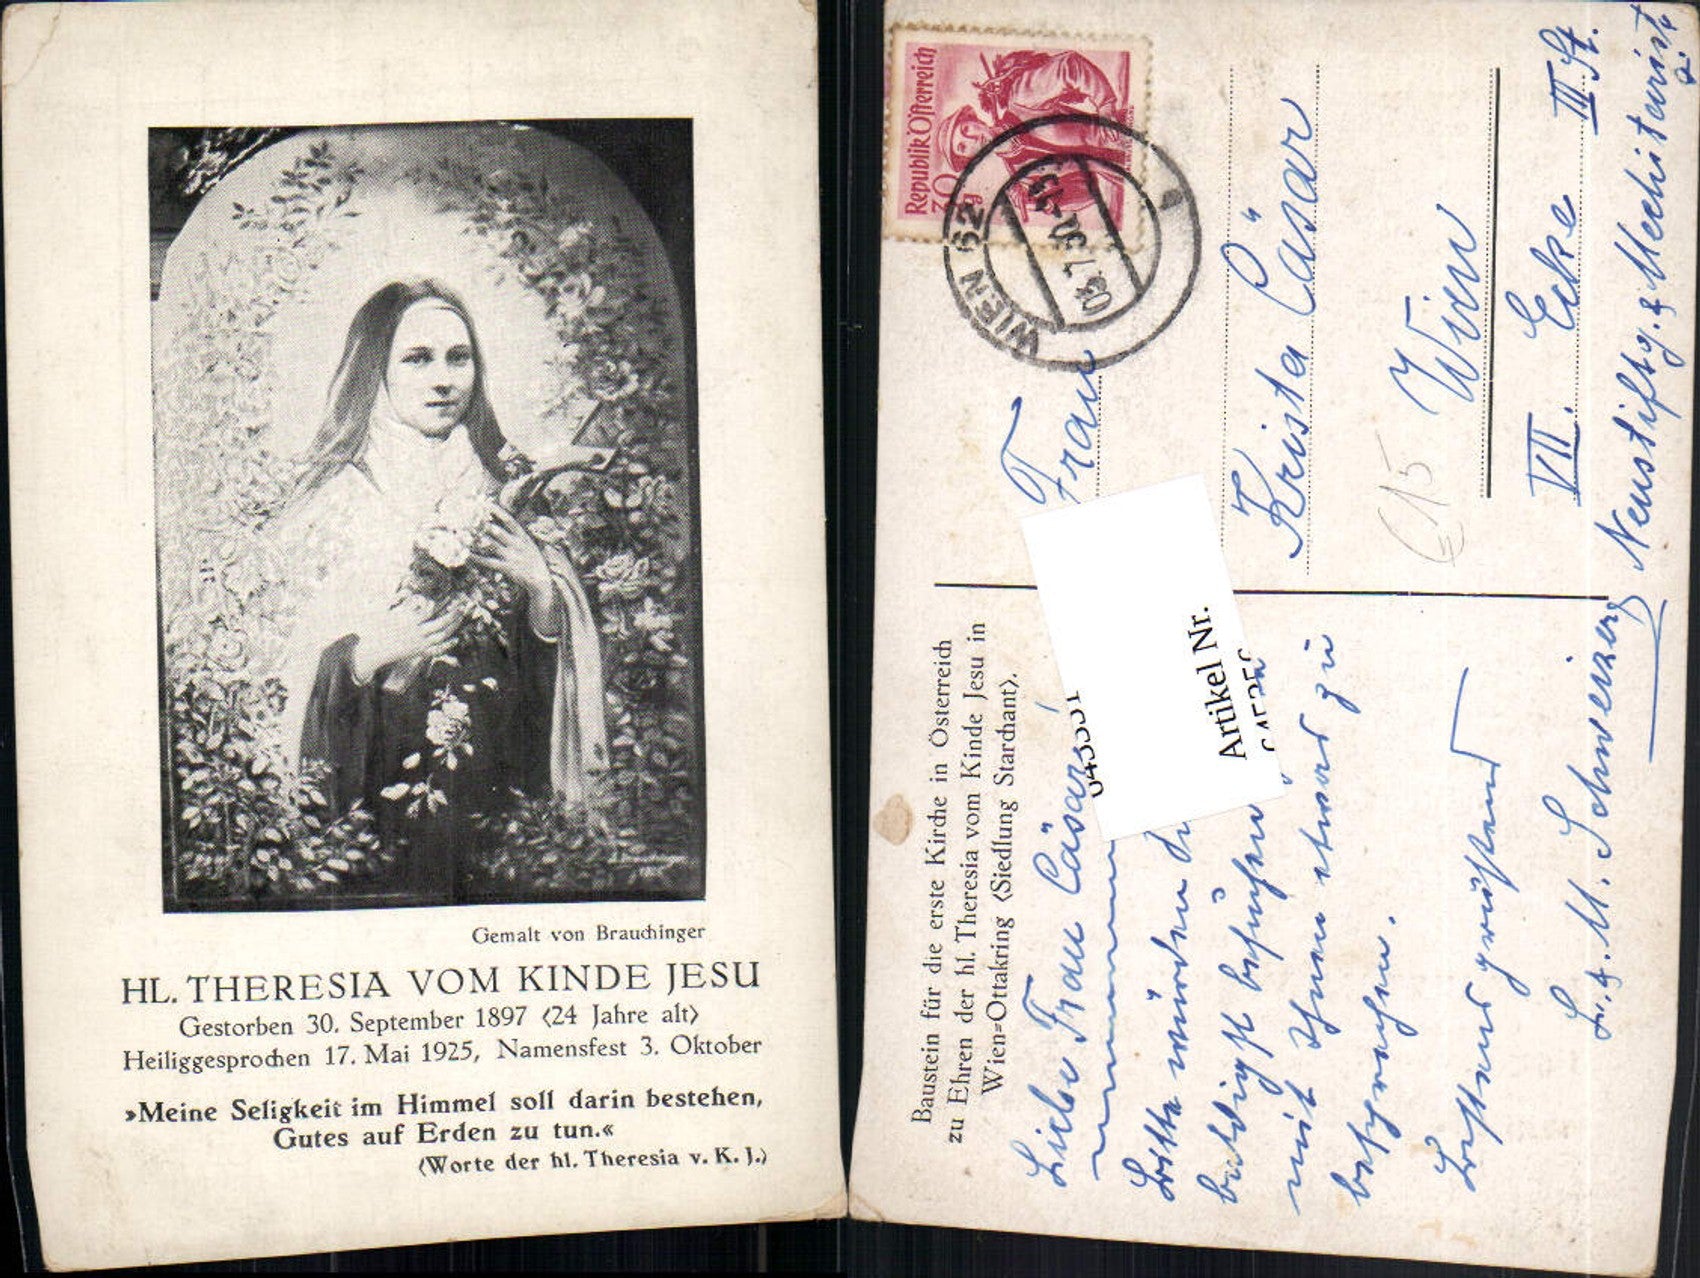 Gemalt von Brauchinger
HL. THERESIA VOM KINDE JESU
Gestorben 30. September 1897 ⟨24 Jahre alt⟩
Heiliggesprochen 17. Mai 1925, Namensfest 3. Oktober
»Meine Seligkeit im Himmel soll darin bestehen,
Gutes auf Erden zu tun.«
⟨Worte der hl. Theresia v. K. J.⟩
Republik Österreich
30 g
WIEN 62
Baustein für die erste Kirche in Österreich
zu Ehren der hl. Theresia vom Kinde Jesu in
Wien=Ottakring ⟨Siedlung Starchant⟩.
Liebe Frau Cäsar!
Bitte würden
baldigst besuchen
mit Ihnen etwas zu
besprechen.
Bestens grüssend
M. Schweizer
Artikel Nr.
Frau
Krista Cäsar
Wien
VII. Ecke III St.
Neustiftg. & Mechitarist
€15